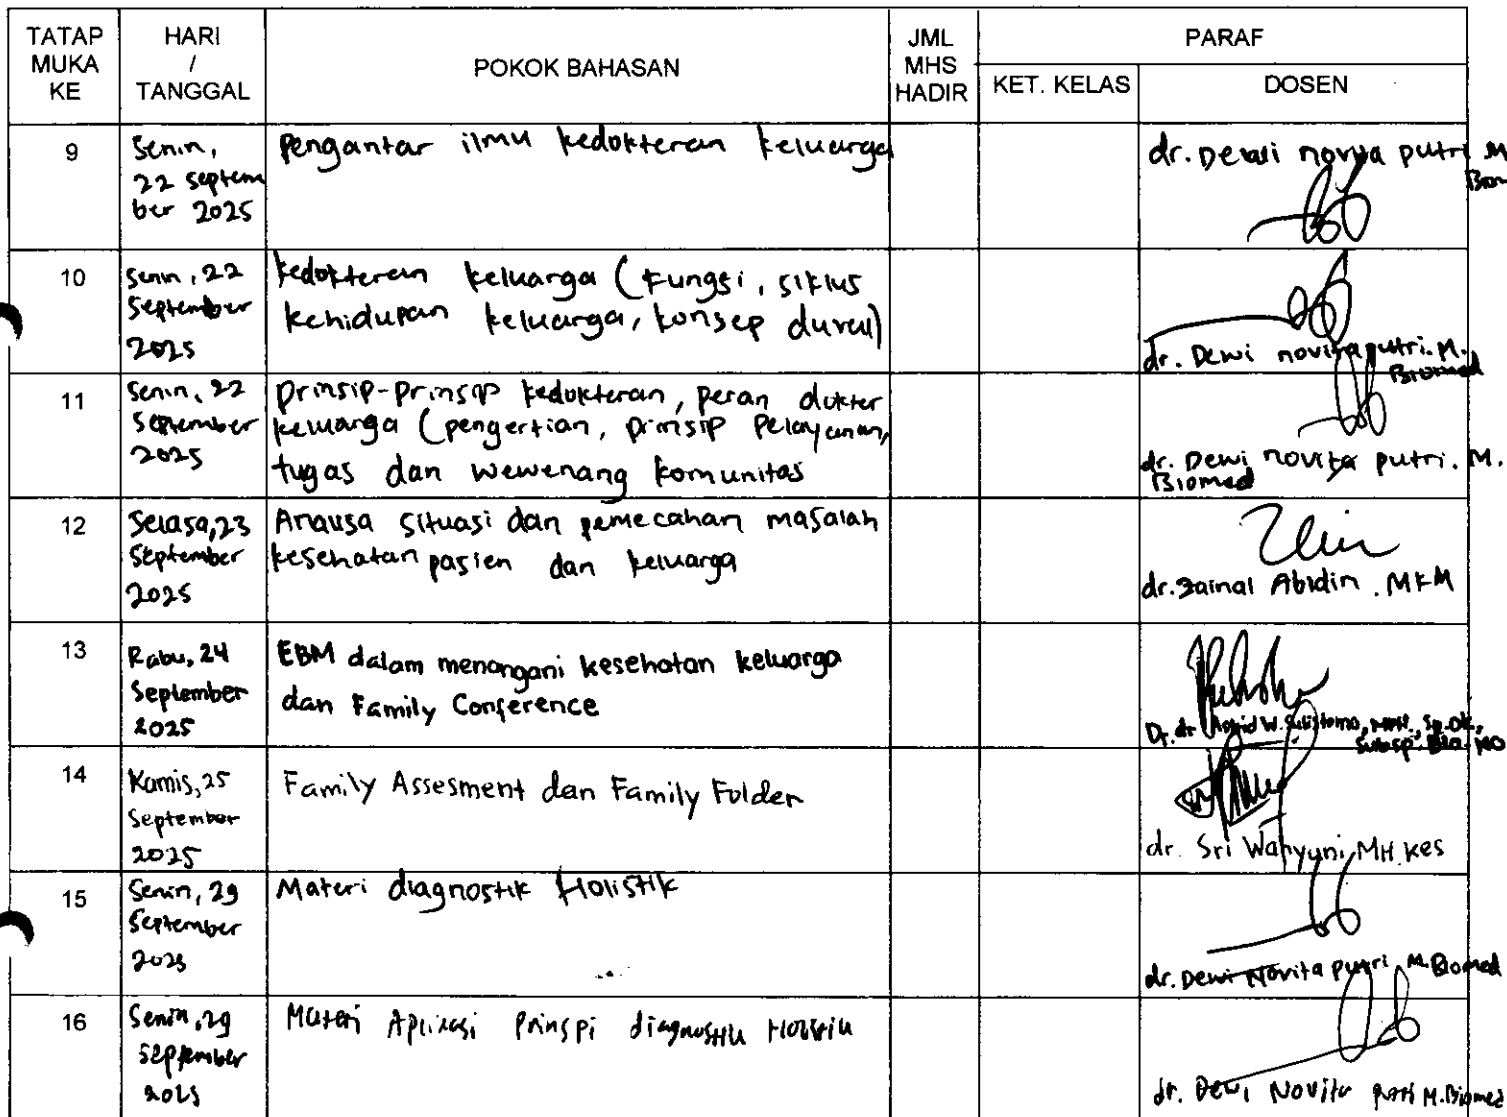 TATAP MUKA KE
HARI / TANGGAL
POKOK BAHASAN
JML MHS HADIR
PARAF
KET. KELAS
DOSEN
9
Senin,
22 septem
ber 2025
Pengantar ilmu kedokteran keluarga
dr. Dewi novita putri M
Biom
10
Senin, 22
September
2025
kedokteran keluarga (Fungsi, siklus
kehidupan keluarga, konsep duval)
dr. Dewi novita putri. M.
Biomed
11
Senin, 22
September
2025
prinsip-prinsip kedokteran, peran dokter
keluarga (pengertian, prinsip pelayanan,
tugas dan wewenang komunitas
dr. Dewi novita putri. M.
Biomed
12
Selasa, 23
September
2025
Analisa situasi dan pemecahan masalah
kesehatan pasien dan keluarga
dr. Zainal Abidin . MKM
13
Rabu, 24
September
2025
EBM dalam menangani kesehatan keluarga
dan Family Conference
Dr. dr Astrid W. Sulistomo, MPH, Sp.Ok,
Subsp.
14
Kamis, 25
September
2025
Family Assesment dan Family Folder
dr. Sri Wahyuni, MH.Kes
15
Senin, 29
September
2025
Materi diagnostik Holistik
dr. Dewi Novita putri M.Biomed
16
Senin, 29
September
2025
Materi Aplikasi Prinspi diagnostik Holistik
dr. Dewi Novita Putri M.Biomed